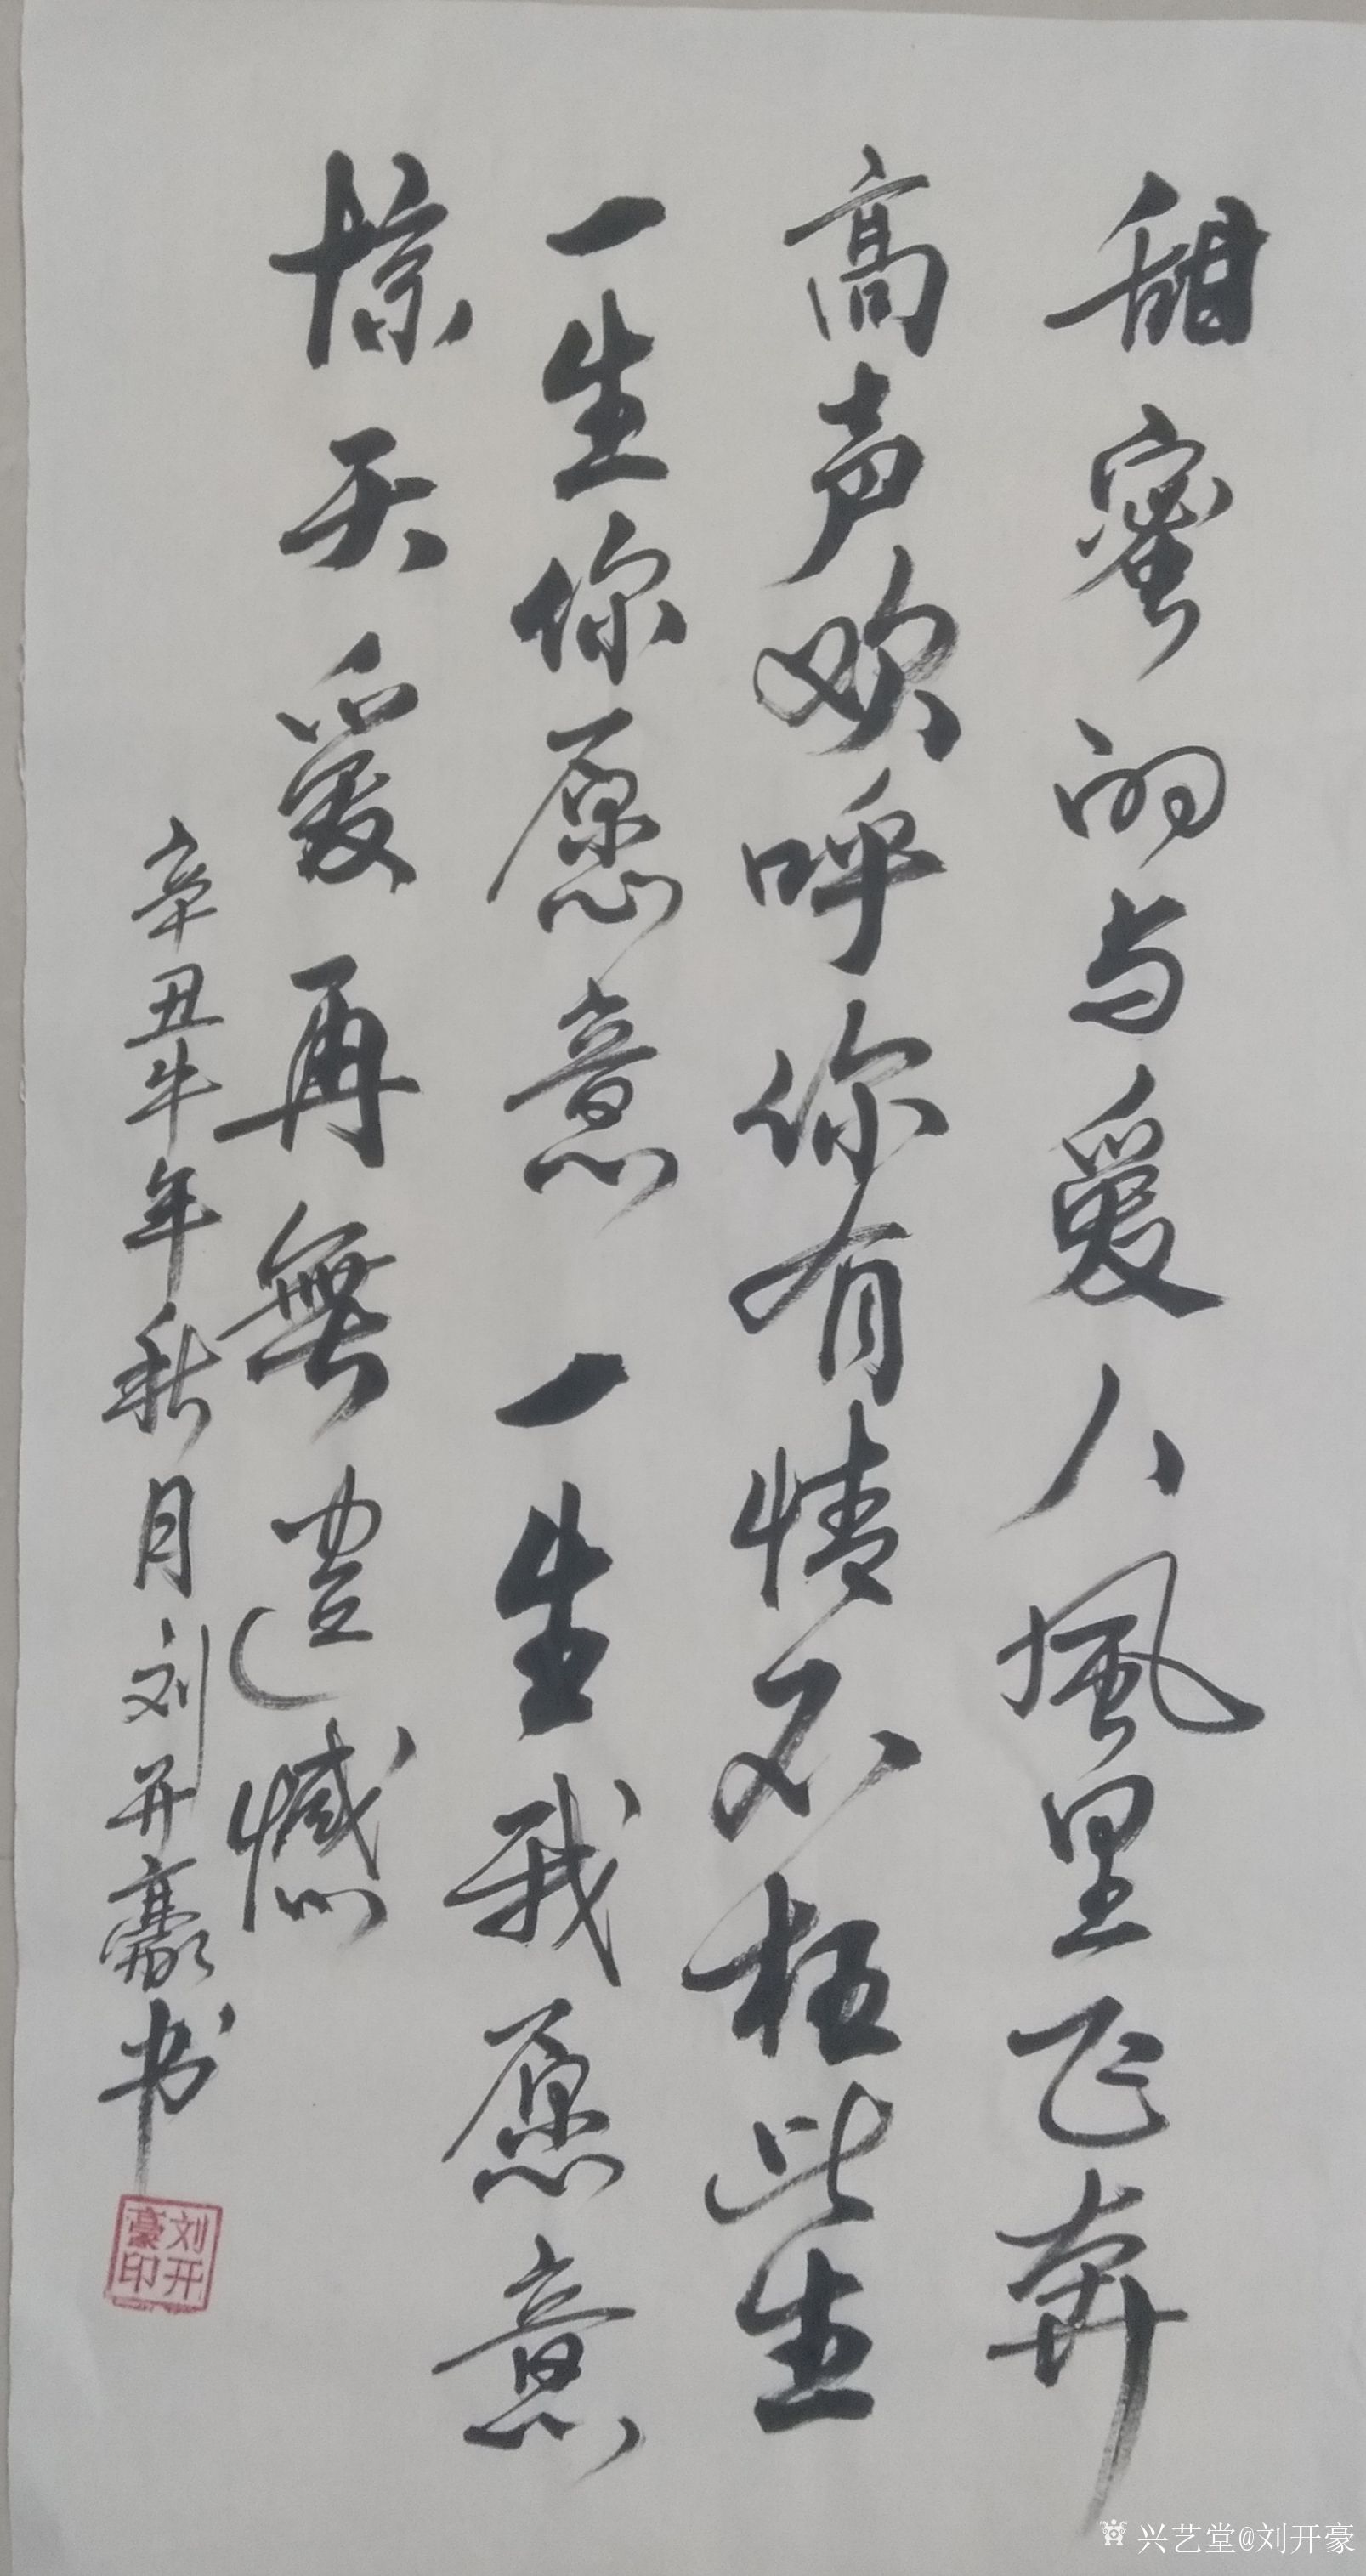 甜蜜的与愛人風里飞奔
高声欢呼你有情不枉此生
一生你愿意一生我愿意
惊天愛再無遗憾
辛丑牛年秋月刘开豪书
刘开豪印
兴艺堂@刘开豪